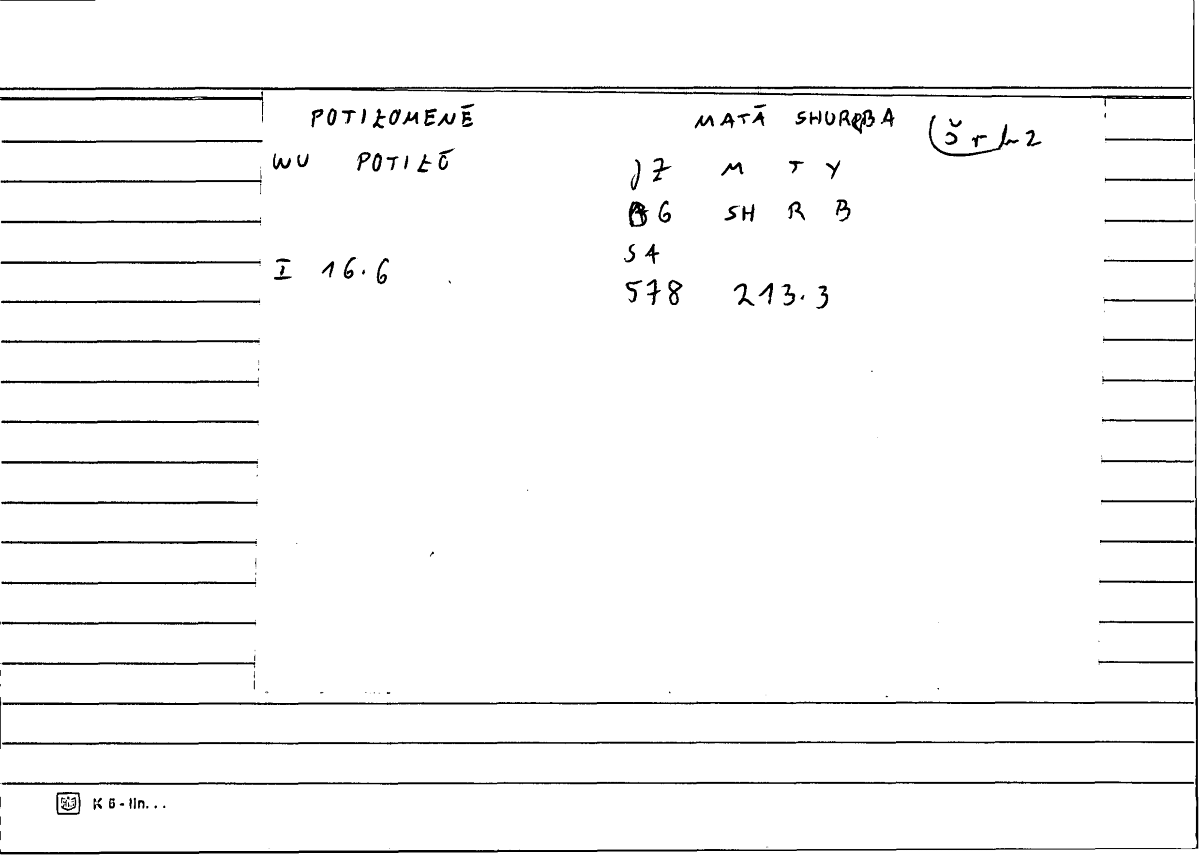 POTIŁOMENĒ MATĀ SHURBA
WU POTIŁŌ JZ M T Y
G SH R B
S4
I 16.6 578 213.3
K 6 - lin...